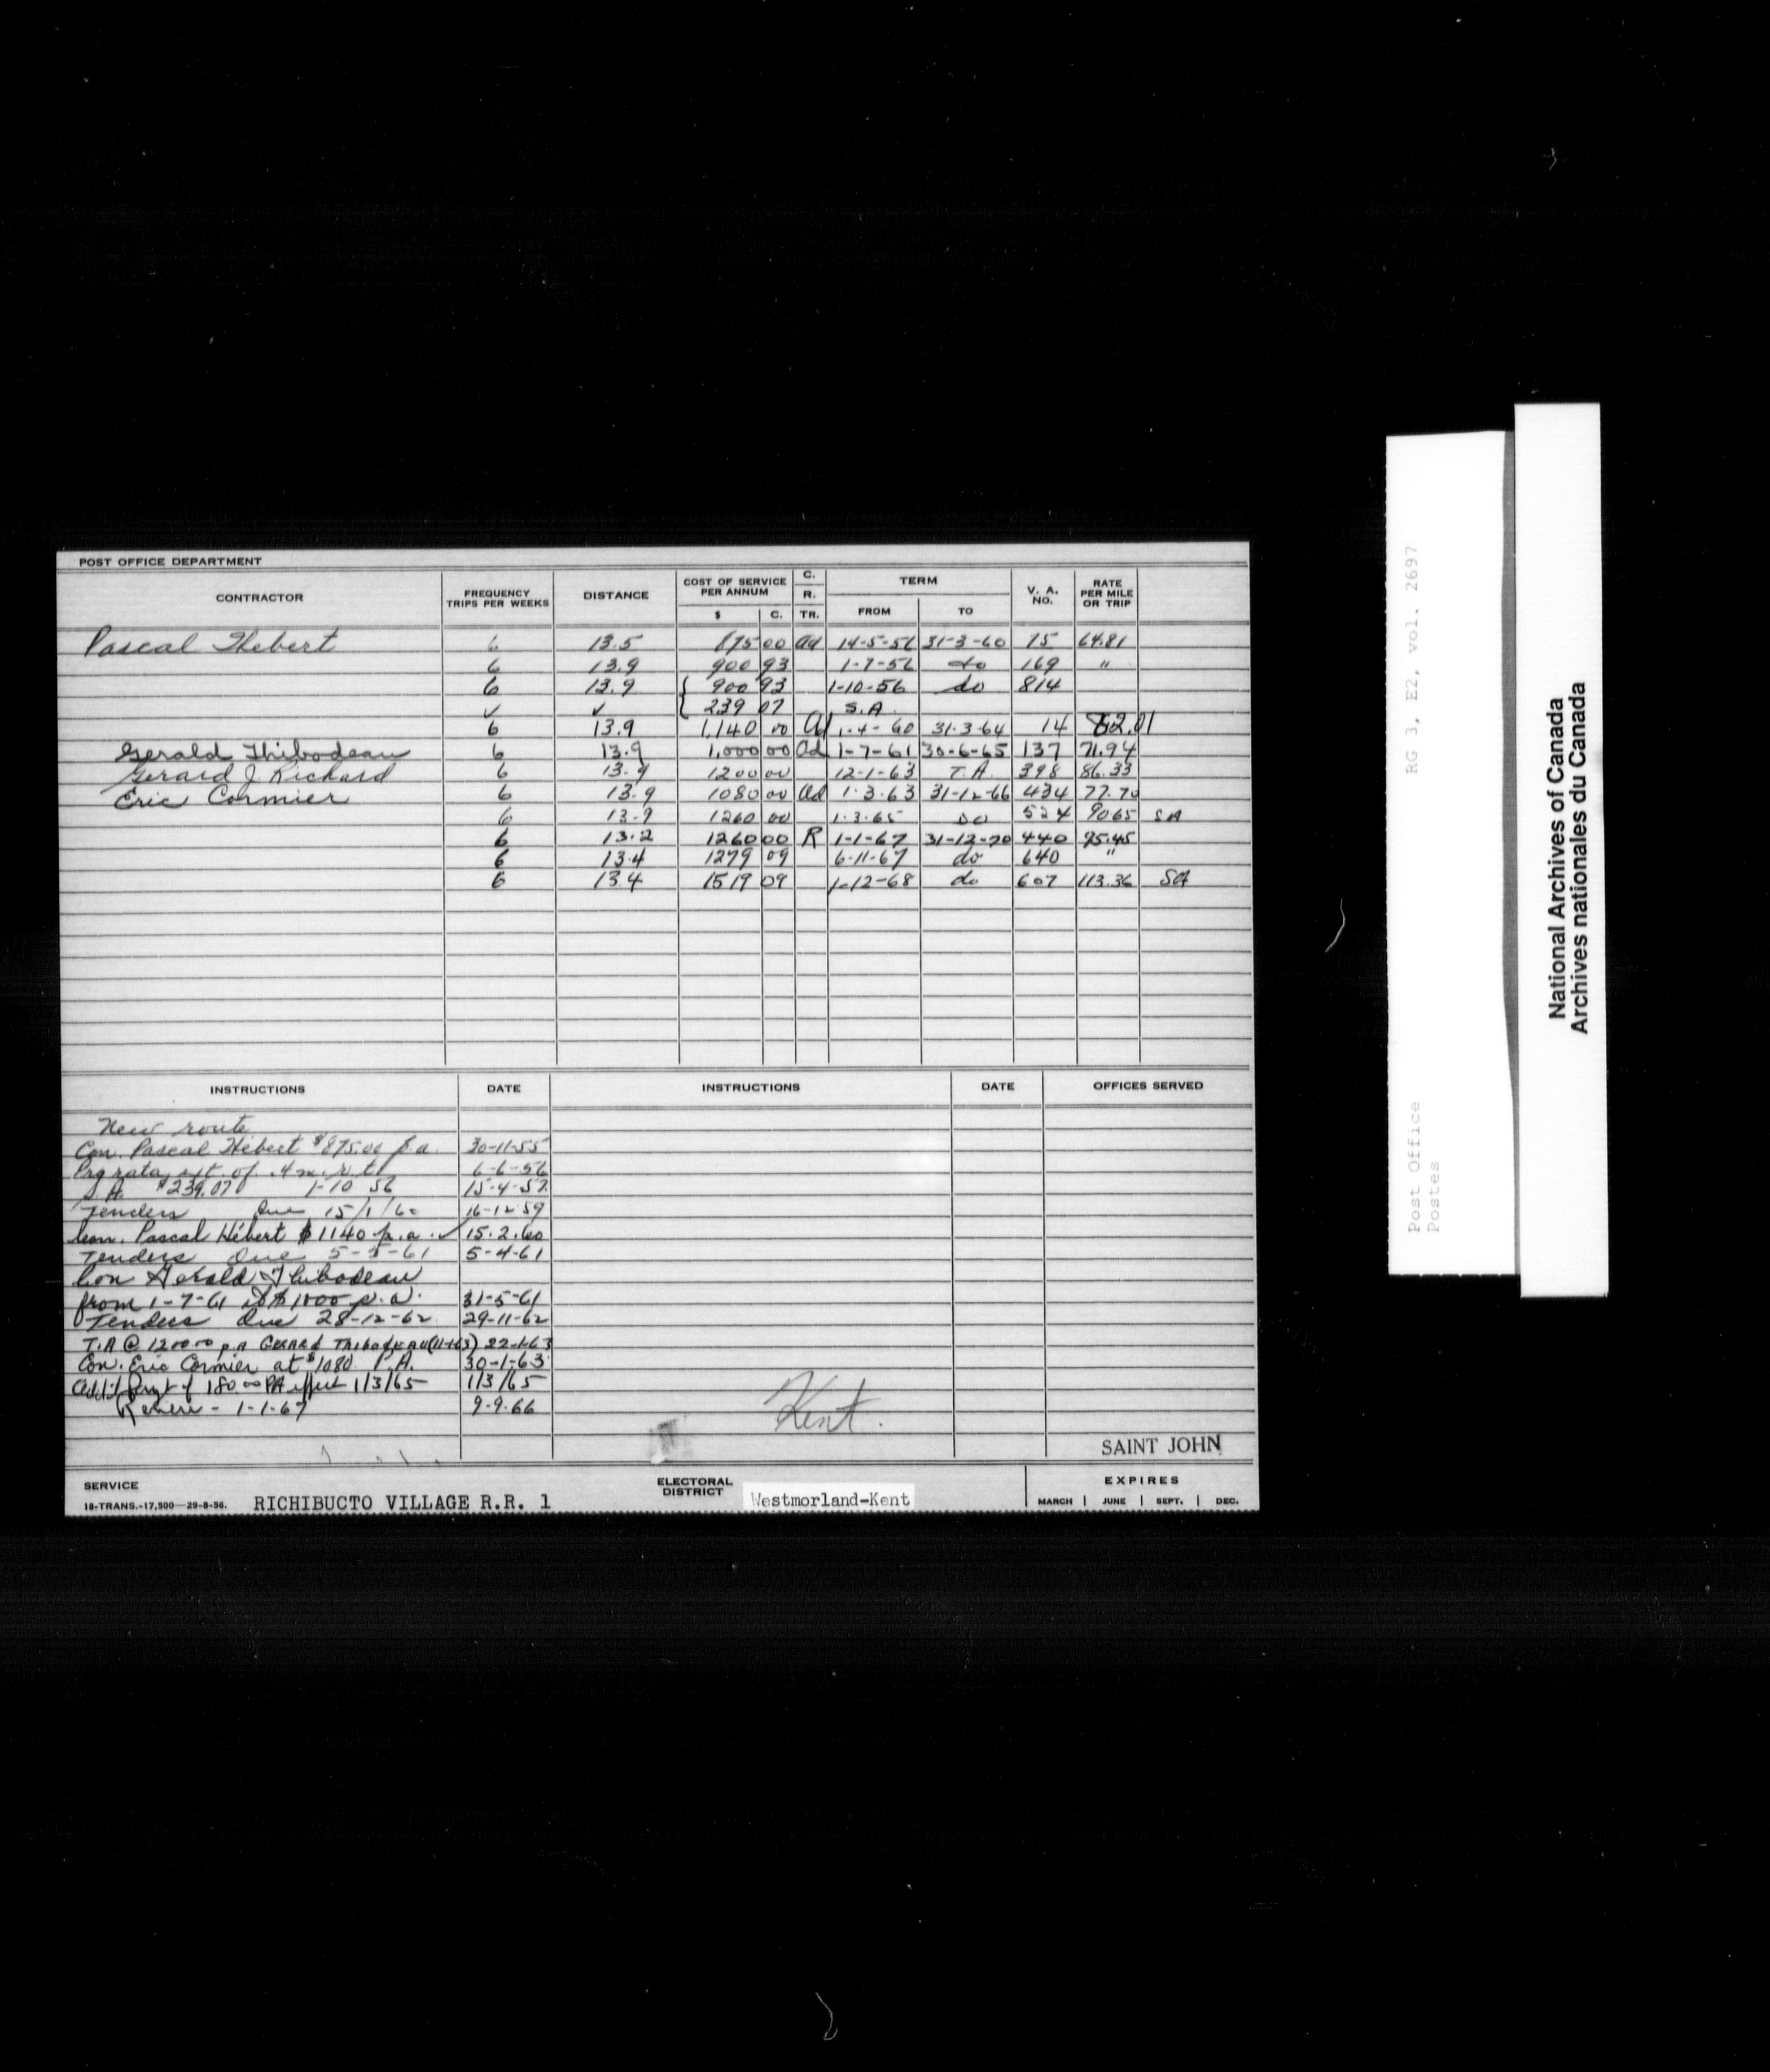 POST OFFICE DEPARTMENT
CONTRACTOR FREQUENCY TRIPS PER WEEKS DISTANCE COST OF SERVICE PER ANNUM $ C. C. R. TR. TERM FROM TO V. A. NO. RATE PER MILE OR TRIP
Pascal Hebert 6 13.5 875 00 Ad 14-5-56 31-3-60 75 64.81
6 13.9 900 93 1-7-56 do 169 "
6 13.9 { 900 93 1-10-56 do 814
✓ ✓ { 239 07 S.A.
6 13.9 1,140 00 Ad 1-4-60 31.3.64 14 82.01
Gerald Thibodeau 6 13.9 1,000 00 Ad 1-7-61 30-6-65 137 71.94
Gerard J. Richard 6 13.9 1200 00 12-1-63 T.A. 398 86.33
Eric Cormier 6 13.9 1080 00 Ad 1.3.63 31-12-66 434 77.70
6 13-9 1260 00 1.3.65 Do 524 9065 SA
6 13.2 1260 00 R 1-1-67 31-12-70 440 95.45
6 13.4 1279 09 6-11-67 do 640 "
6 13.4 1519 09 1-12-68 do 607 113.36 SA
INSTRUCTIONS DATE INSTRUCTIONS DATE OFFICES SERVED
New route
Con. Pascal Hébert $875.00 p.a. 30-11-55
Pro rata ext. of .4 m. r.t. 6-6-56
S.A. $239.07 1-10 56 15-4-57
Tenders Due 15/1/60 16-12 59
Con. Pascal Hébert $1140 p.a. ✓ 15.2.60
Tenders Due 5-5-61 5-4-61
Con Gerald Thibodeau
from 1-7-61 at $1000 p.a. 31-5-61
Tenders Due 28-12-62 29-11-62
T.A @ 1200.00 p.a Gerard Thibodeau 22-1-63
Con. Eric Cormier at $1080 P.A. 30-1-63
180.00 PA effect 1/3/65 1/3/65
Renew - 1-1-67 9-9.66
Kent.
SAINT JOHN
SERVICE
18-TRANS.-17,500—29-8-56. RICHIBUCTO VILLAGE R.R. 1
ELECTORAL DISTRICT Westmorland-Kent
EXPIRES
MARCH | JUNE | SEPT. | DEC.
RG 3, E2, vol. 2697
Post Office
Postes
National Archives of Canada
Archives nationales du Canada